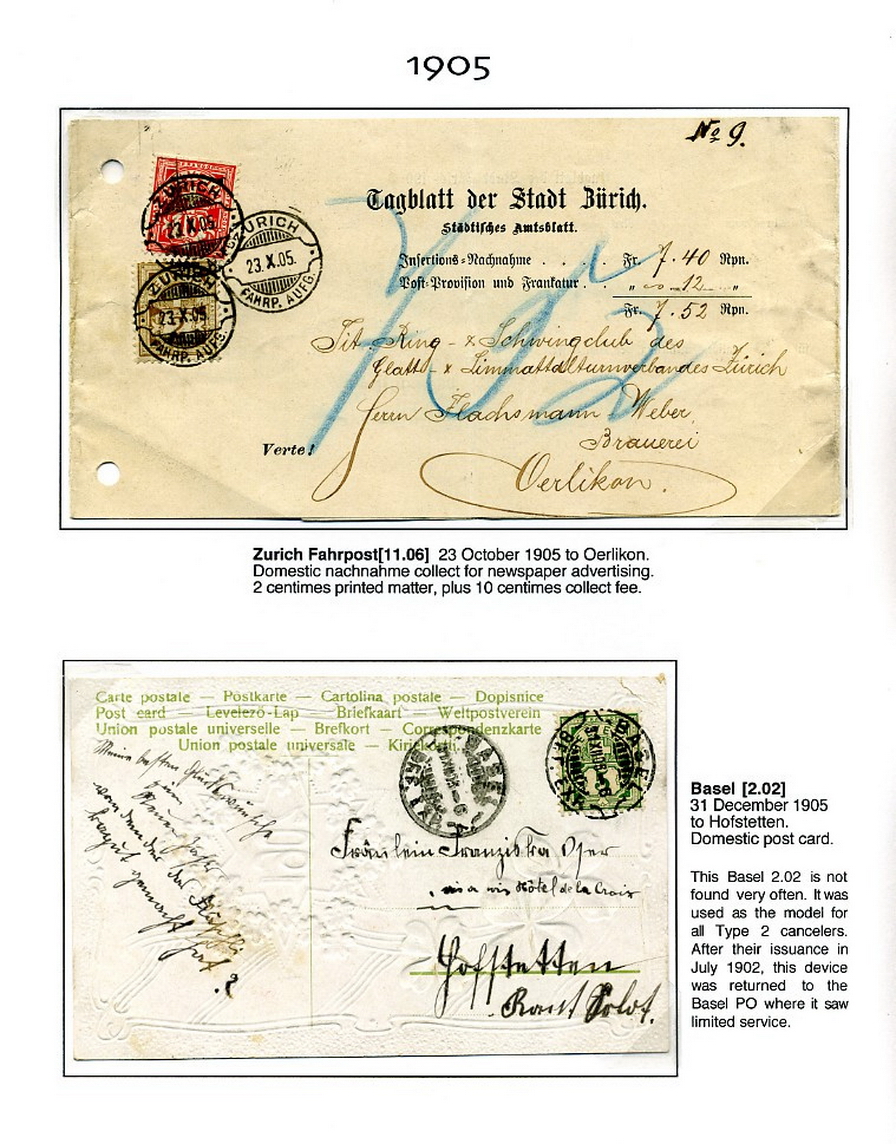 1905
No 9.
Tagblatt der Stadt Zürich.
Städtisches Amtsblatt.
Insertions-Nachnahme . . . . . Fr. 7.40 Rpn.
Post-Provision und Frankatur . . „ 12 „
Fr. 7.52 Rpn.
ZÜRICH
23.X.05.
FAHRP. AUFG.
ZÜRICH
23.X.05.
ZÜRICH
23.X.05
FAHRP. AUFG.
752
Tit. Ring- & Schwingclub des
Glatt- & Limmattalturnverbandes Zürich
Herrn Flachsmann-Weber
Brauerei
Oerlikon.
Verte!
Zurich Fahrpost[11.06] 23 October 1905 to Oerlikon.
Domestic nachnahme collect for newspaper advertising.
2 centimes printed matter, plus 10 centimes collect fee.
Carte postale — Postkarte — Cartolina postale — Dopisnice
Post card — Levelező-Lap — Briefkaart — Weltpostverein
Union postale universelle — Brefkort — Correspondenzkarte
Union postale universale —
BASEL
BASEL
5
Meine besten Glückwünsche
zum
Neuen Jahr
von dem der
gemacht hat
.?
Fräulein Franziska Oser
Hôtel de la Croix
Hofstetten
Kant Solot.
Basel [2.02]
31 December 1905
to Hofstetten.
Domestic post card.
This Basel 2.02 is not
found very often. It was
used as the model for
all Type 2 cancelers.
After their issuance in
July 1902, this device
was returned to the
Basel PO where it saw
limited service.